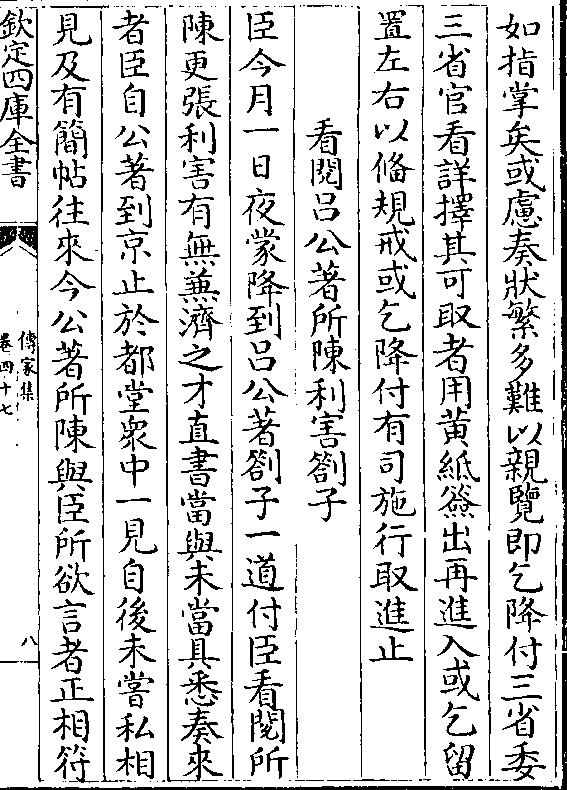 如指掌矣或慮奏狀繁多難以親覽即乞降付三省委
三省官看詳擇其可取者用黄紙簽出再進入或乞留
置左右以備規戒或乞降付有司施行取進止
看閲吕公著所陳利害劄子
臣今月一日夜蒙降到吕公著劄子一道付臣看閲所
陳更張利害有無兼濟之才直書當與未當具悉奏來
者臣自公著到京止於都堂衆中一見自後未嘗私相
見及有簡帖往來今公著所陳與臣所欲言者正相符
欽定四庫全書
傳家集
卷四十七
八